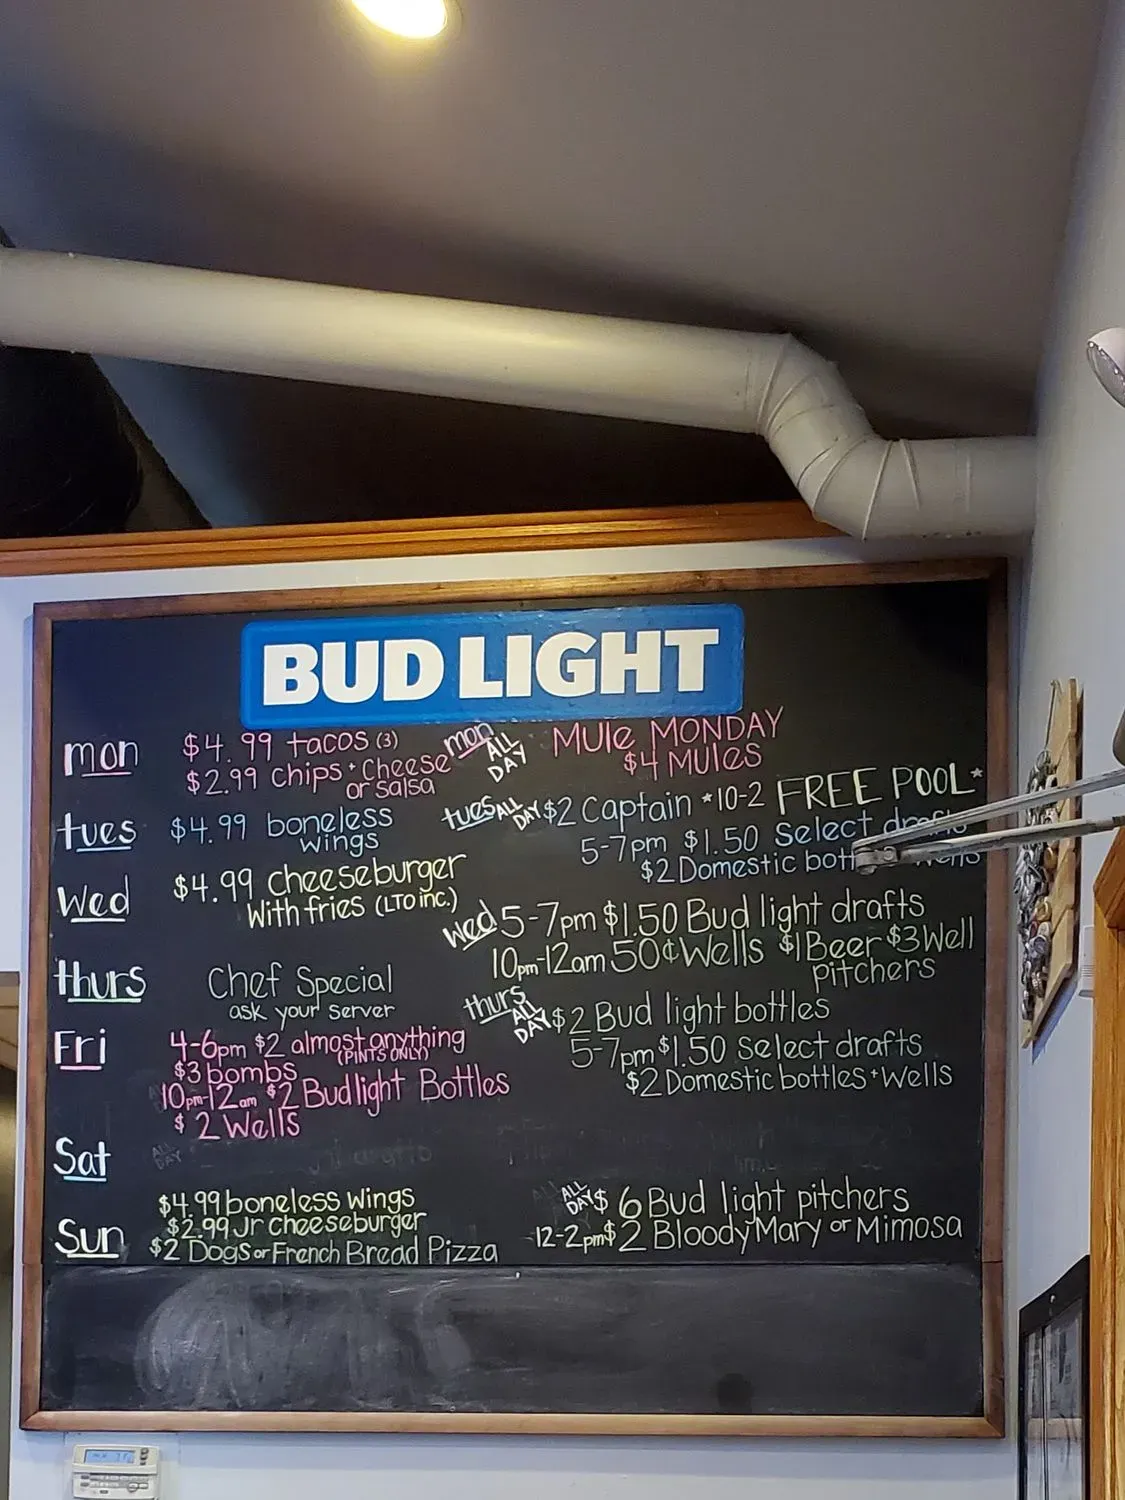 BUD LIGHT
mon
$4.99 tacos (3)
$2.99 chips + cheese
or salsa
mon ALL DAY
MULE MONDAY
$4 MULES
tues
$4.99 boneless
wings
tues ALL DAY $2 Captain *10-2 FREE POOL*
5-7pm $1.50 Select drafts
$2 Domestic bott Wells
Wed
$4.99 cheeseburger
With fries (LTO inc.)
Wed 5-7pm $1.50 Bud light drafts
10pm-12am 50¢ Wells $1 Beer $3 Well
pitchers
thurs
Chef Special
ask your server
thurs ALL DAY $2 Bud light bottles
5-7pm $1.50 select drafts
$2 Domestic bottles + Wells
Fri
4-6pm $2 almost anything
(PINTS ONLY)
$3 bombs
10pm-12am $2 Budlight Bottles
$2 Wells
Sat
ALL DAY
Sun
$4.99 boneless wings
$2.99 Jr cheeseburger
$2 Dogs or French Bread Pizza
ALL DAY $6 Bud light pitchers
12-2pm $2 Bloody Mary or Mimosa